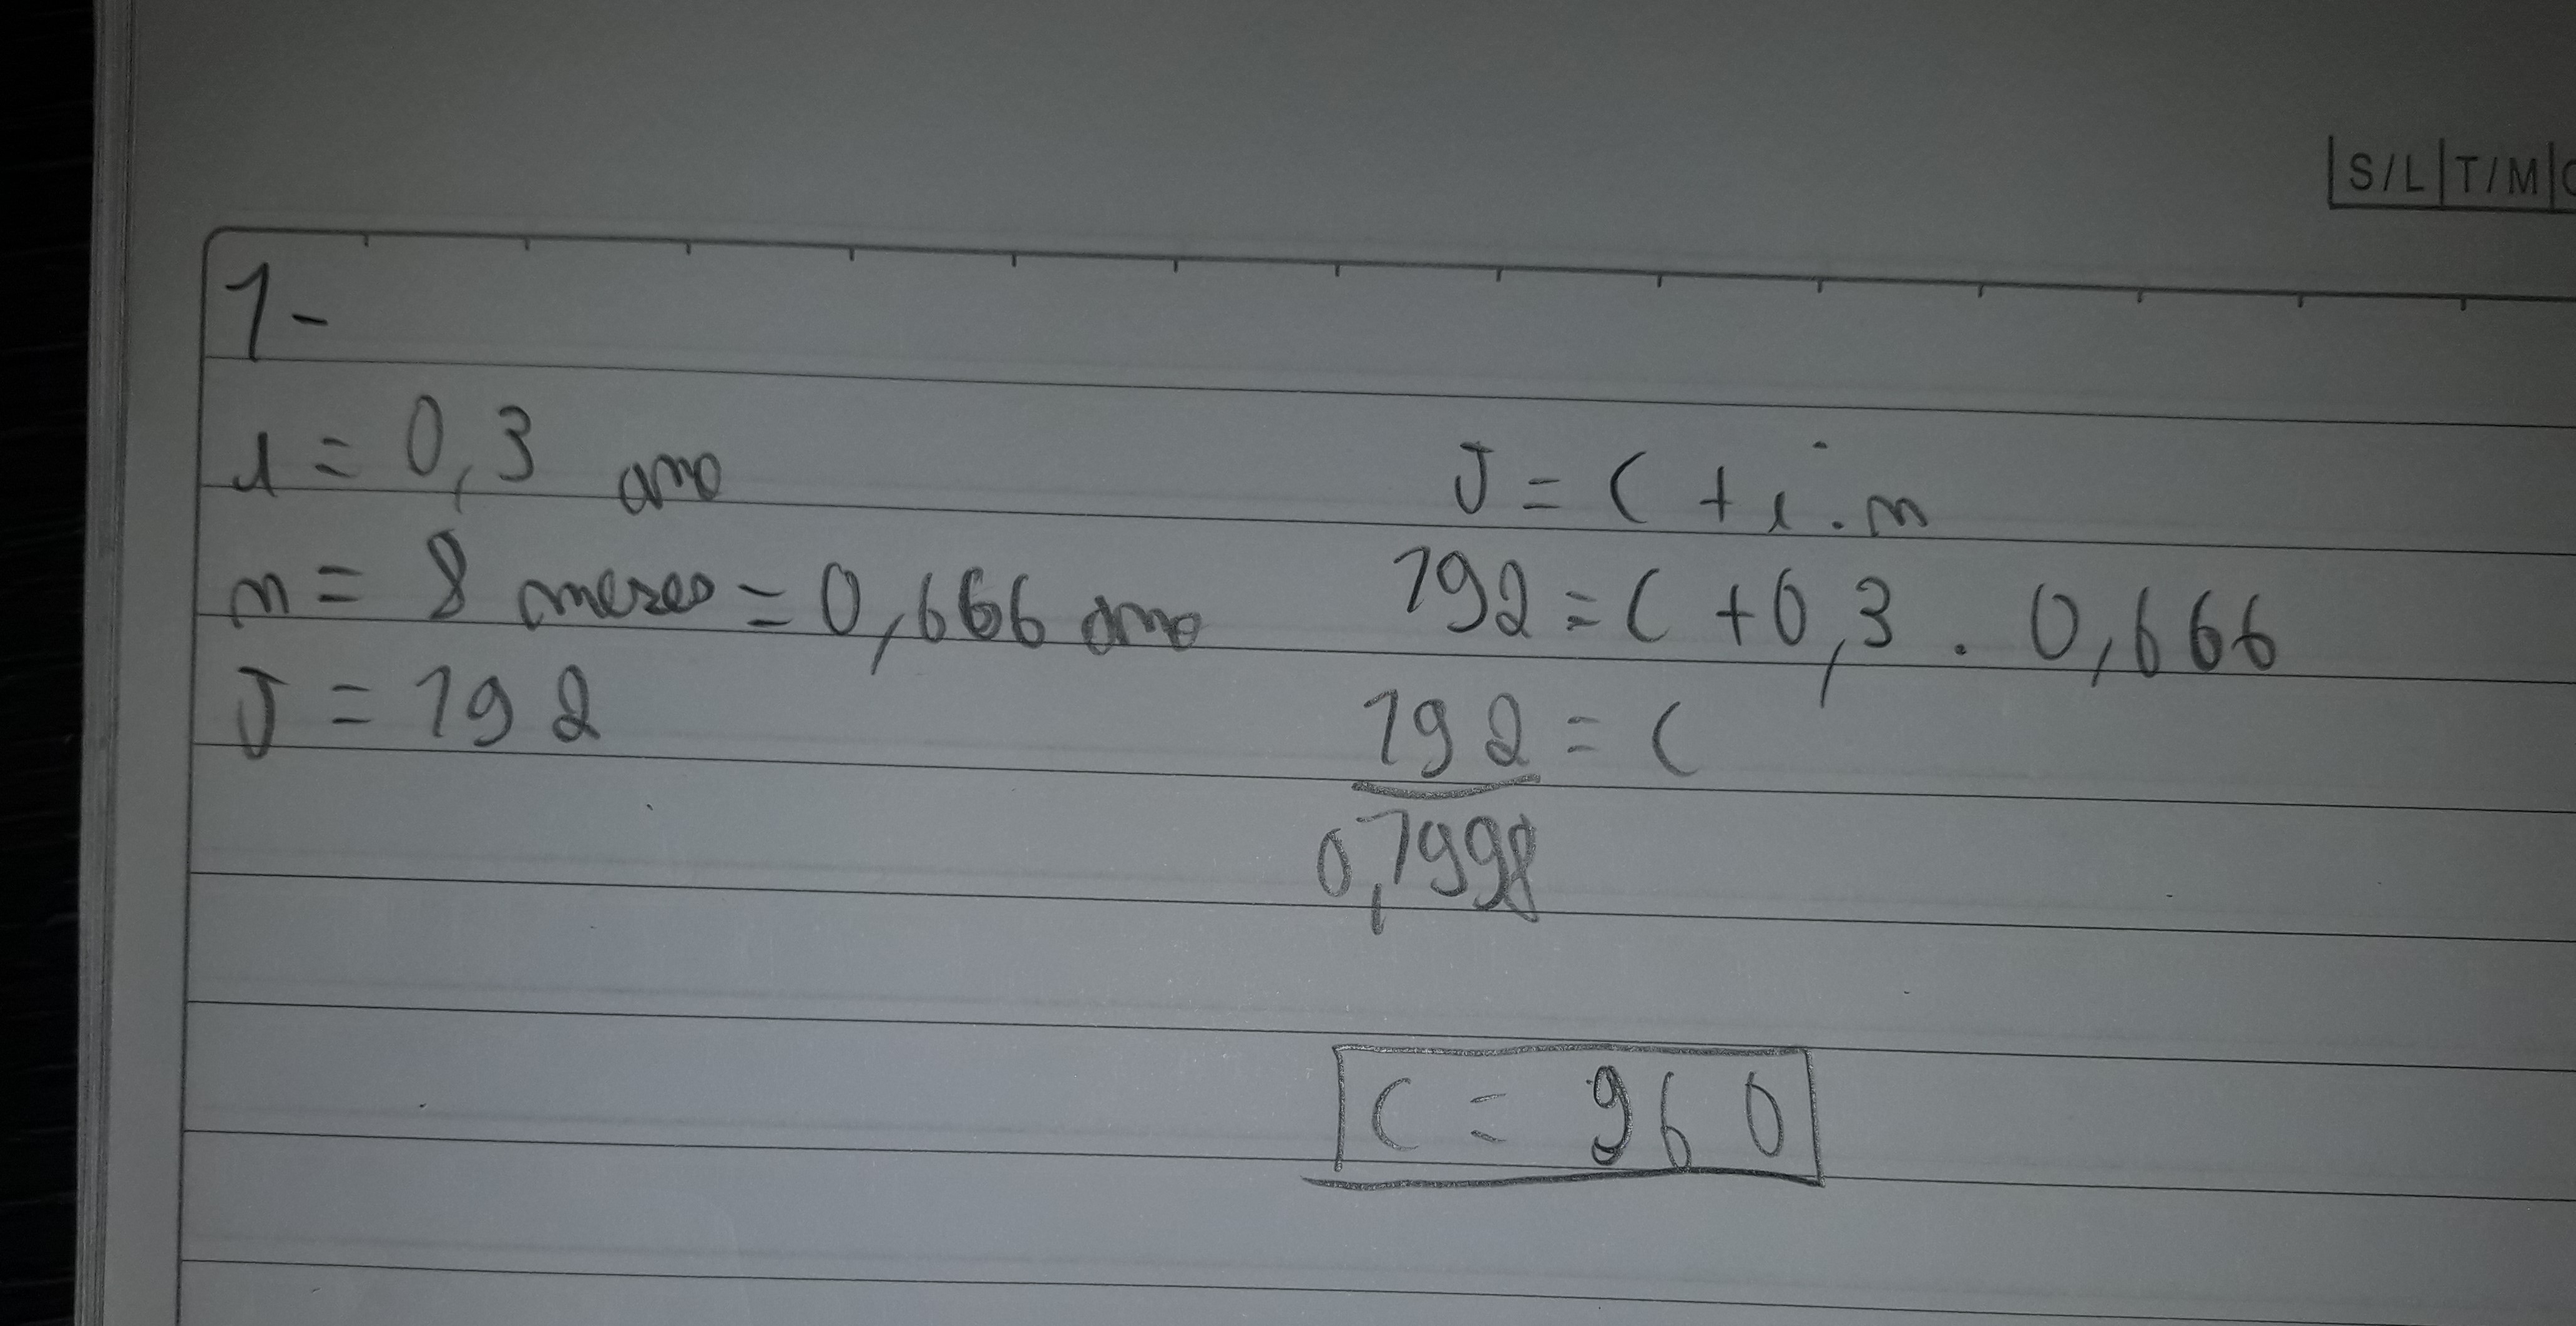 S/L T/M
1-
i = 0,3 ano
n = 8 meses = 0,666 ano
J = 192
J = C + i . n
192 = C + 0,3 . 0,666
192 = C
0,1998
C = 960